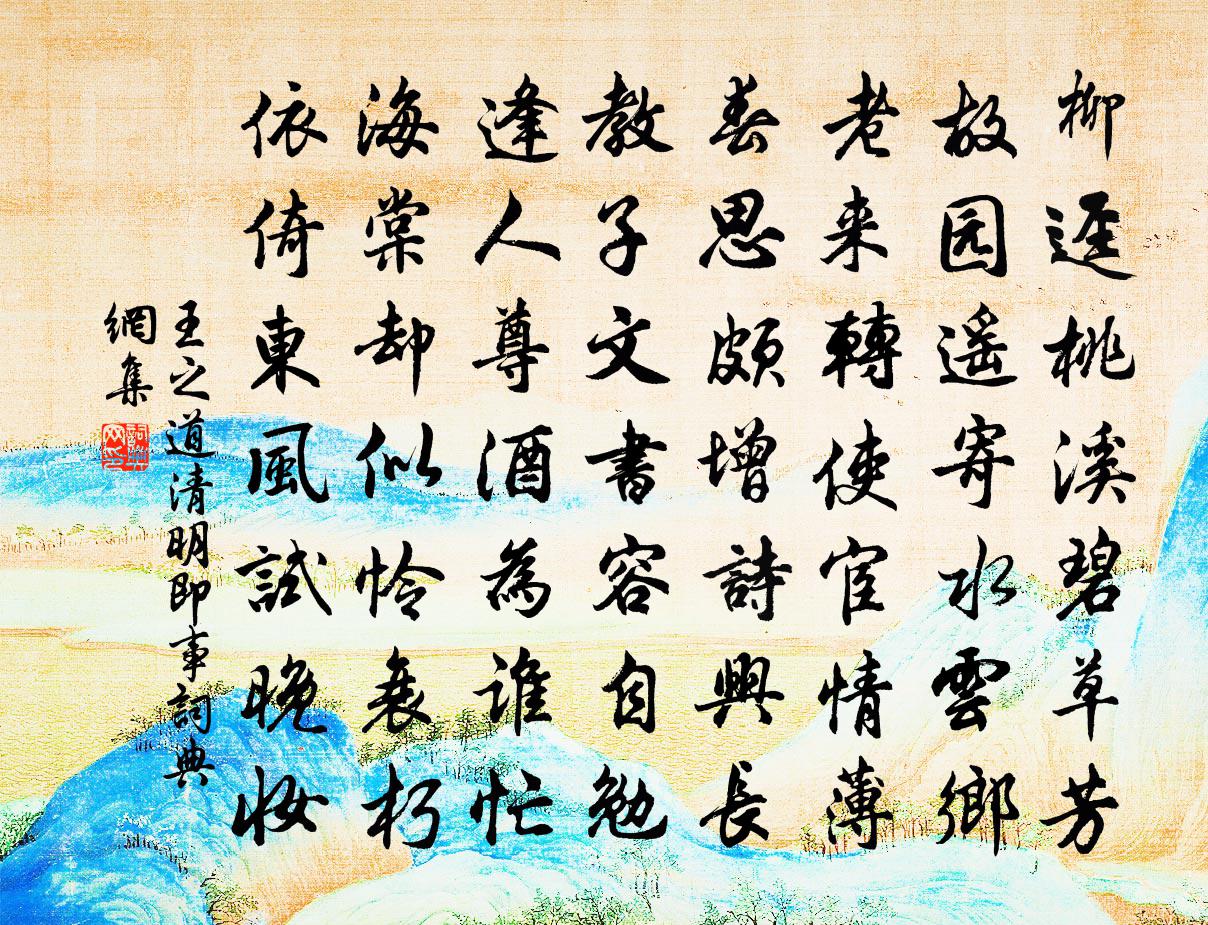 柳遲桃溪碧草芳
故园遥寄水雲鄉
老来轉使宦情薄
春思頗增詩興長
教子文書容自勉
逢人尊酒為誰忙
海棠却似怜衰朽
依倚東風試晚妆
王之道清明即事詞典
網集